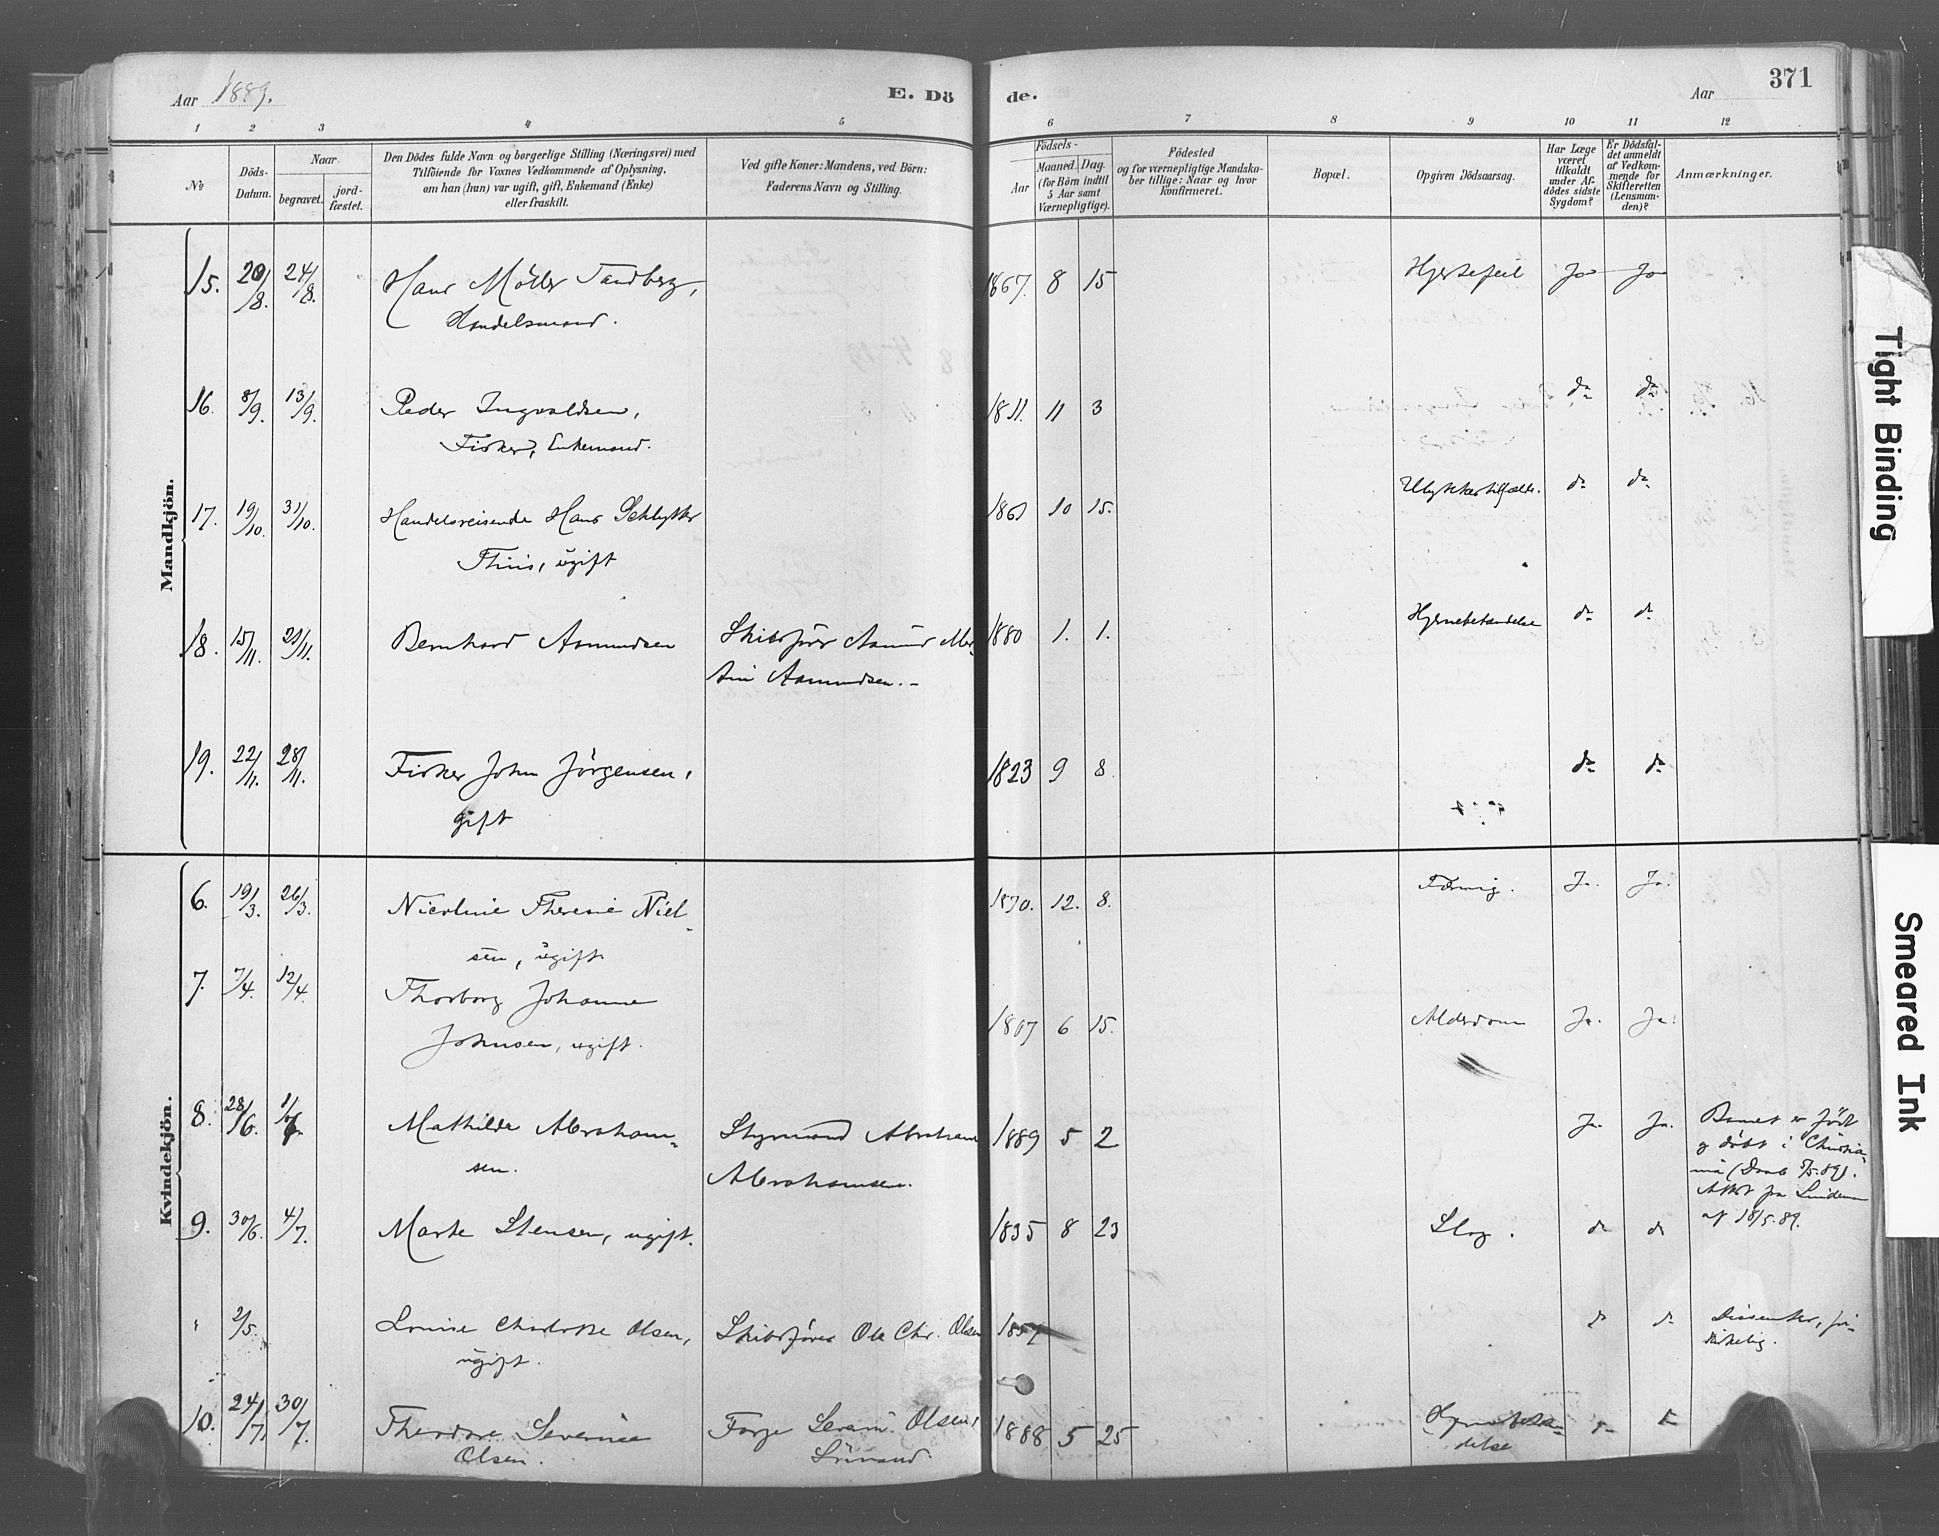 Aar 1889.
E. Dö
de.
Aar
371
1 2 3 4 5 6 7 8 9 10 11 12
№
Döds-
Datum.
Naar
begravet.
jord-
fæstet.
Den Dödes fulde Navn og borgerlige Stilling (Næringsvei) med
Tilföiende for Voxnes Vedkommende af Oplysning,
om han (hun) var ugift, gift, Enkemand (Enke)
eller fraskilt.
Ved gifte Koner: Mandens, ved Börn:
Faderens Navn og Stilling.
Födsels-
Aar
Maaned. Dag.
(for Börn indtil
5 Aar samt
Værnepligtige).
Födested
og for værnepligtige Mandska-
ber tillige: Naar og hvor
konfirmeret.
Bopæl.
Opgiven Dödsaarsag.
Har Læge
været
tilkaldt
under Af-
dödes sidste
Sygdom?
Er Dödsfal-
det anmeldt
af Vedkom-
mende for
Skifteretten
(Lensman-
den)?
Anmærkninger.
Mandkjön.
15. 20/8. 24/8. Hans Möller Tandberg, 1867. 8 15 Hjertefeil Ja Ja
Handelsmand.
16. 8/9. 13/9. Peder Ingvaldsen, 1811. 11 3 do do
Fisker, Enkemand.
17. 19/10. 31/10. Handelsreisende Hans Schlytter 1861 10 15. Ulykkestilfælde. do do
Thiis, ugift
18. 15/11. 21/11. Bernhard Asmundsen Skibsfører Asmund Mar- 1880 1. 1. Hjernebetændelse do do
tin Asmundsen.-
19. 22/11. 28/11. Fisker John Jörgensen, 1823 9 8. do do
gift
Kvindekjön.
6. 19/3. 26/3. Nicoline Theresie Niel- 1870. 12. 8. Tæring. Ja. Ja.
sen, ugift
7. 7/4. 12/4. Thorborg Johanne
Johnsen, ugift. 1807 6 15. Alderdom Ja. Ja.
8. 28/6. 1/7. Mathilde Abraham- Styrmand Abraham 1889 5 2 Ja. Ja. Barnet er født
sen. Abrahamsen. og døbt i Christia-
nia (Daab 5/5.89).
Attest fra Lindem
af 18/5.89.
9. 30/6. 4/7. Marte Stensen, ugift. 1835 8 23 Slag. do do
" 2/5. Louise Charlotte Olsen, Skibsfører Ole Chr. Olsen 1857 do do Dissenter, fri-
ugift. kirkelig.
10. 24/7. 30/7. Theodora Severine Olsen, 1888 5 25 Hjernebetæn- do do
Olsen. Sömand. delse
Tight Binding
Smeared Ink